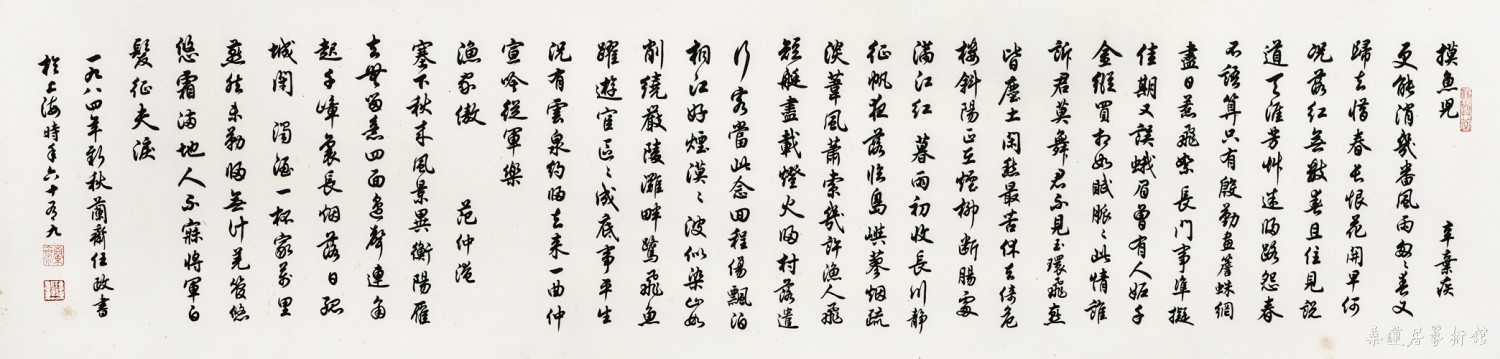 摸魚児 辛棄疾
更能消幾番風雨匆〻春又
歸去惜春長恨花開早何
況落红無數春且住見説
道天涯芳艸迷歸路怨春
不語算只有殷勤畫簷蛛網
盡日惹飛絮長門事準擬
佳期又誤蛾眉曾有人妬千
金縱買相如賦脈〻此情誰
訴君莫舞君不見玉環飛燕
皆塵土閑愁最苦休去倚危
樓斜陽正在煙柳斷腸處
滿江红 暮雨初收長川靜
征帆夜落臨島嶼蓼烟疏
淡葦風蕭索幾許漁人飛
短艇盡載燈火歸村落遣
行客當此念回程傷飄泊
桐江好煙漠〻波似染山如
削繞嚴陵灘畔鷺飛魚
躍遊宦區〻成底事平生
況有雲泉約歸去来一曲仲
宣吟從軍樂
漁家傲 范仲淹
塞下秋来風景異衡陽雁
去無留意四面邊聲連角
起千嶂裏長烟落日孤
城閉 濁酒一杯家萬里
燕然未勒歸無計羌管悠
悠霜滿地人不寐將軍白
髮征夫淚
一九八四年新秋蘭齋任政書
於上海時年六十有九
桑蓮居藝術館